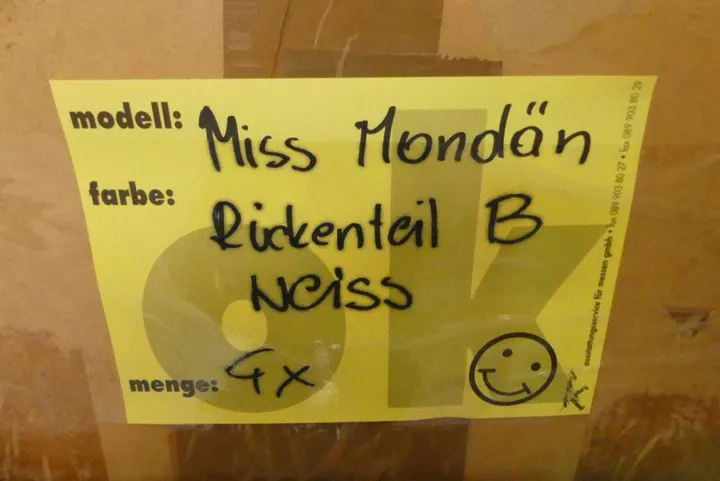 modell: Miss Mondän
farbe: Rückenteil B
weiss
menge: 4x
ok
ausstattungsservice für messen gmbh • fon 089 903 80 27 • fax 089 903 80 29